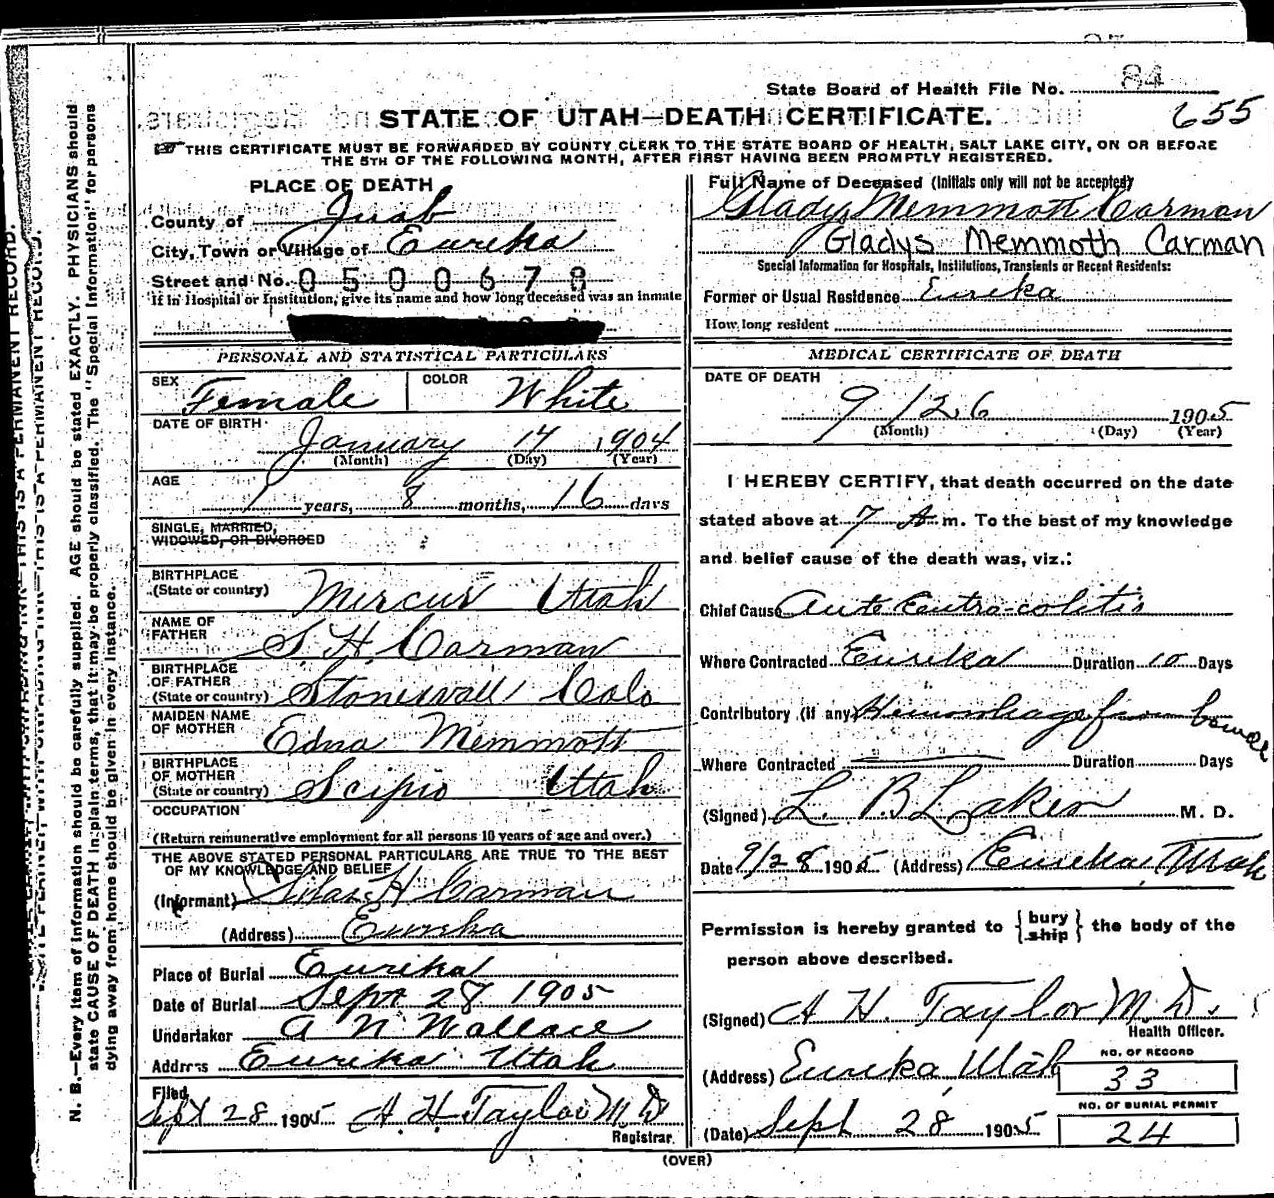 State Board of Health File No. 84
655
STATE OF UTAH—DEATH CERTIFICATE.
THIS CERTIFICATE MUST BE FORWARDED BY COUNTY CLERK TO THE STATE BOARD OF HEALTH, SALT LAKE CITY, ON OR BEFORE
THE 5TH OF THE FOLLOWING MONTH, AFTER FIRST HAVING BEEN PROMPTLY REGISTERED.
N. B.—Every item of information should be carefully supplied. AGE should be stated EXACTLY. PHYSICIANS should
state CAUSE OF DEATH in plain terms, that it may be properly classified. The "Special Information" for persons
dying away from home should be given in every instance.
THIS IS A PERMANENT RECORD.
PLACE OF DEATH
County of Juab
City, Town or Village of Eureka
Street and No. 0500678
If in Hospital or Institution, give its name and how long deceased was an inmate
PERSONAL AND STATISTICAL PARTICULARS
SEX Female COLOR White
DATE OF BIRTH
January 17 1904
(Month) (Day) (Year)
AGE
1 years, 8 months, 16 days
SINGLE, MARRIED,
WIDOWED, OR DIVORCED
BIRTHPLACE
(State or country) Mercur Utah
NAME OF
FATHER S. H. Carman
BIRTHPLACE
OF FATHER
(State or country) Stonewall Colo
MAIDEN NAME
OF MOTHER Edna Memmott
BIRTHPLACE
OF MOTHER
(State or country) Scipio Utah
OCCUPATION
(Return remunerative employment for all persons 10 years of age and over.)
THE ABOVE STATED PERSONAL PARTICULARS ARE TRUE TO THE BEST
OF MY KNOWLEDGE AND BELIEF
(Informant) Silas H Carman
(Address) Eureka
Place of Burial Eureka
Date of Burial Sept 28 1905
Undertaker A N Wallace
Address Eureka Utah
Filed
Sept 28 1905 A. H. Taylor M D
Registrar.
Full Name of Deceased (Initials only will not be accepted)
Gladys Memmott Carman
Gladys Memmoth Carman
Special Information for Hospitals, Institutions, Transients or Recent Residents:
Former or Usual Residence Eureka
How long resident
MEDICAL CERTIFICATE OF DEATH
DATE OF DEATH
9/26 1905
(Month) (Day) (Year)
I HEREBY CERTIFY, that death occurred on the date
stated above at 7 A m. To the best of my knowledge
and belief cause of the death was, viz.:
Chief Cause Aute Entro-colitis
Where Contracted Eureka Duration 10 Days
Contributory (if any) Hemorrhage from bowels
Where Contracted Duration Days
(Signed) L. B Laker M. D.
Date 9/28 1905 (Address) Eureka, Utah
Permission is hereby granted to { bury ship } the body of the
person above described.
(Signed) A H. Taylor M.D.
Health Officer.
(Address) Eureka, Utah
NO. OF RECORD
33
NO. OF BURIAL PERMIT
24
(Date) Sept 28 1905
(OVER)